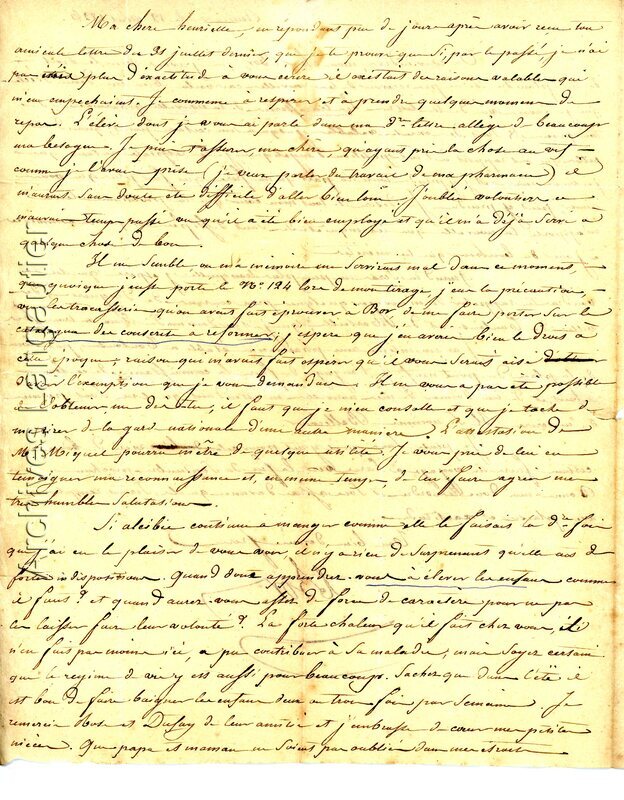 Ma chere henriette, en répondant peu de jours après avoir recu ton
amicale lettre du 31 juillet dernier, que je te prouve que si, par le passé, je n'ai
pas mis plus d'exactitude a vous ecrire il existait des raisons valables qui
m'en empechaient. Je commence à respirer et à prendre quelques momens de
repos. L'élève dont je vous ai parlé dans ma dre lettre allège de beaucoup
ma besogne. Je puis t'assurer ma chère, qu'ayant pris la chose au vif
comme je l'avais prise (je veux parler du travail de ma pharmacie) il
m'aurait sans doute été difficile d'aller bien loin. J'oublie volontiers ce
mauvais temps passé vu qu'il a été bien employé et qu'il m'a déjà servi à
quelque chose de bon.
Il me semble ou ma mémoire me servirait mal dans ce moment,
que quoique j'eusse porté le No. 124 lors de mon tirage, j'eus la précaution,
vu les tracasseries qu'on avait fait éprouver à Bor de me faire porter sur le
catalogue des conscrits à réformer; j'espère que j'en avais bien le droit à
cette époque; raison qui m'avait fait espérer qu'il vous serait aisé
l'exemption que je vous demandais. Il ne vous a pas été possible
de l'obtenir, me dis-tu; il faut que je m'en console et que je tache de
me tirer de la garde nationale d'une autre manière. L'attestation de
Mr Miquel pourra m'être de quelque utilité. Je vous prie de lui en
temoigner ma reconnaissance et, en même temps, de lui faire agréer mes
tres humbles salutations.
Si alcibée continue a manger comme elle le faisait la dre fois
que j'ai eu le plaisir de vous voir, il n'y a rien de surprenant qu'elle ait de
fortes indispositions. Quand donc apprendrez-vous à élever les enfans comme
il faut? et quand aurez-vous assez de force de caractère pour ne pas
leur laisser faire leur volonté? La forte chaleur qu'il fait chez vous, il
n'en fait pas moins ici, a pu contribuer à sa maladie; mais soyez certains
que le regime de vie y est aussi pour beaucoup. Sachez que dans l'été il
est bon de faire baigner les enfans deux ou trois fois par semaine. Je
remercie Rose et Dufay de leur amitié et j'embrasse de coeur mes petites
nièces. Que papa et maman ne soient pas oubliés dans mes
Archives-Legautier